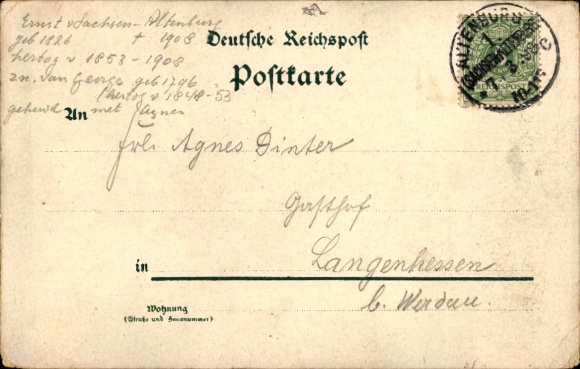 Ernst v Sachsen-Altenburg
geb 1826 † 1908
hertog v 1853-1908
zn. van George geb 1796
(hertog v 1848-53
gehuwd met Agnes
Deutsche Reichspost
Postkarte
An
Frl. Agnes Dinter
Gasthof
in Langenhessen
b. Werdau.
Wohnung
(Straße und Hausnummer)
ALTENBURG
REICHSPOST